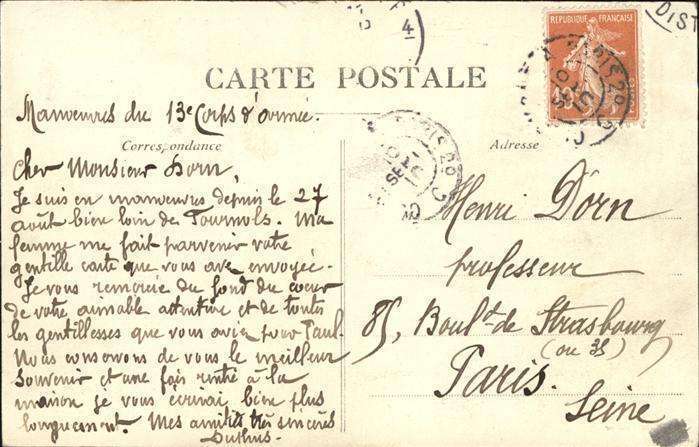 4
DIST
REPUBLIQUE FRANÇAISE
CARTE POSTALE
Manoeuvres du 13e Corps d'armée.
Correspondance
Adresse
Cher Monsieur Dorn,
Je suis en manoeuvres depuis le 27
août bien loin de Tournols. Ma
femme me fait parvenir votre
gentille carte que vous avez envoyée.
Je vous remercie du fond du coeur
de votre aimable attention et de toutes
les gentillesses que vous avez pour Paul.
Nous conservons de vous le meilleur
souvenir et une fois rentré à la
maison je vous écrirai bien plus
longuement. Mes amitiés très sincères
Henri Dorn
professeur
85, Boul.d de Strasbourg
(ou 35)
Paris.
Seine